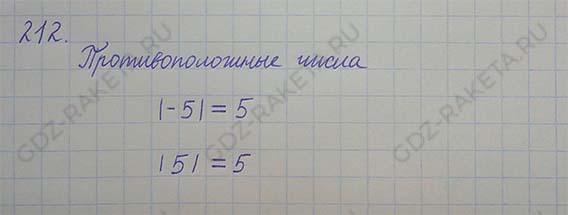 212.
Противоположные числа
|-5| = 5
|5| = 5
GDZ-RAKETA.RU
GDZ-RAKETA.RU
GDZ-RAKETA.RU
GDZ-RAKETA.RU